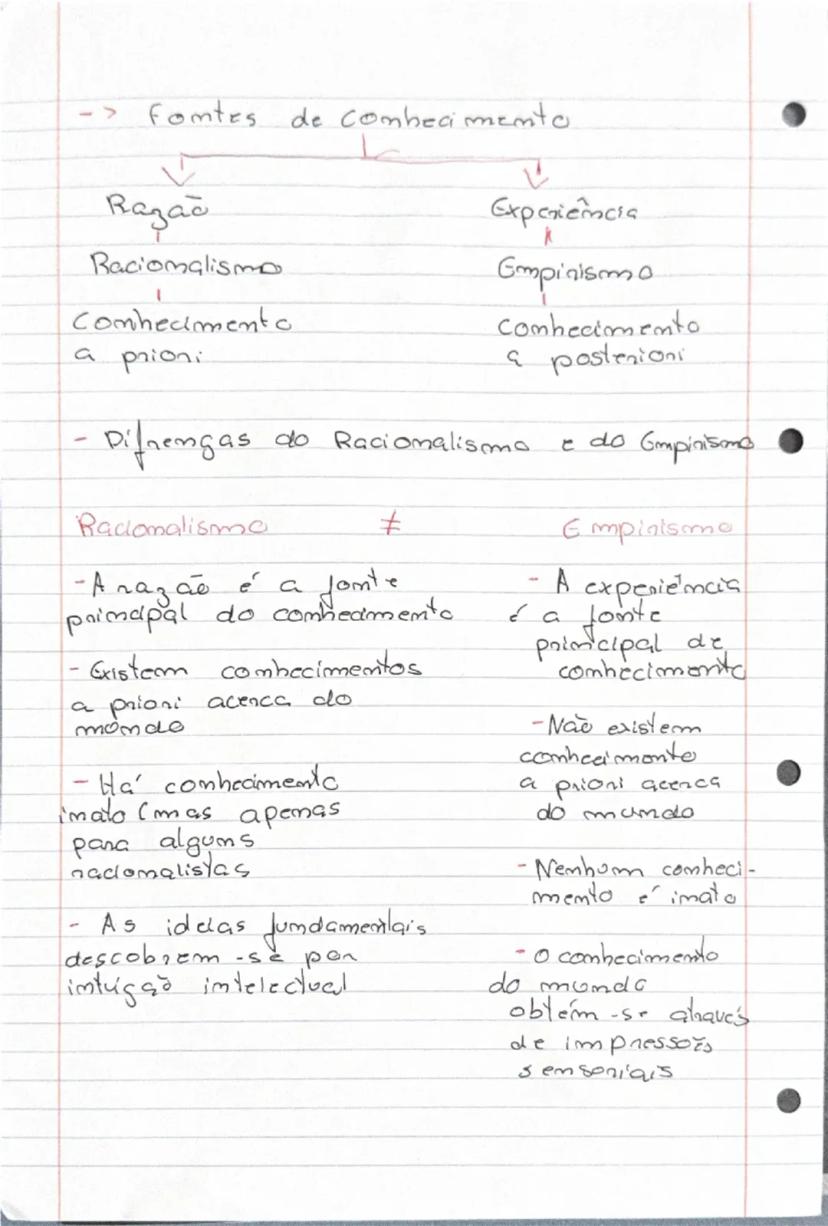 -> Fontes de conhecimento
Razão Experiência
Racionalismo Empirismo
Conhecimento conhecimento
a priori a posteriori
- Difrenças do Racionalismo e do Empirismo
Racionalismo ≠ Empirismo
- A razão é a fonte
principal do conhecimento
- Existem conhecimentos
a priori acerca do
mundo
- Há conhecimento
inato (mas apenas
para alguns
racionalistas
- As ideias fundamentais
descobrem-se por
intuição intelectual
- A experiência
é a fonte
principal de
conhecimento
- Não existem
conhecimento
a priori acerca
do mundo
- Nenhum conheci-
mento é inato
- O conhecimento
do mundo
obtém-se através
de impressões
sensoriais